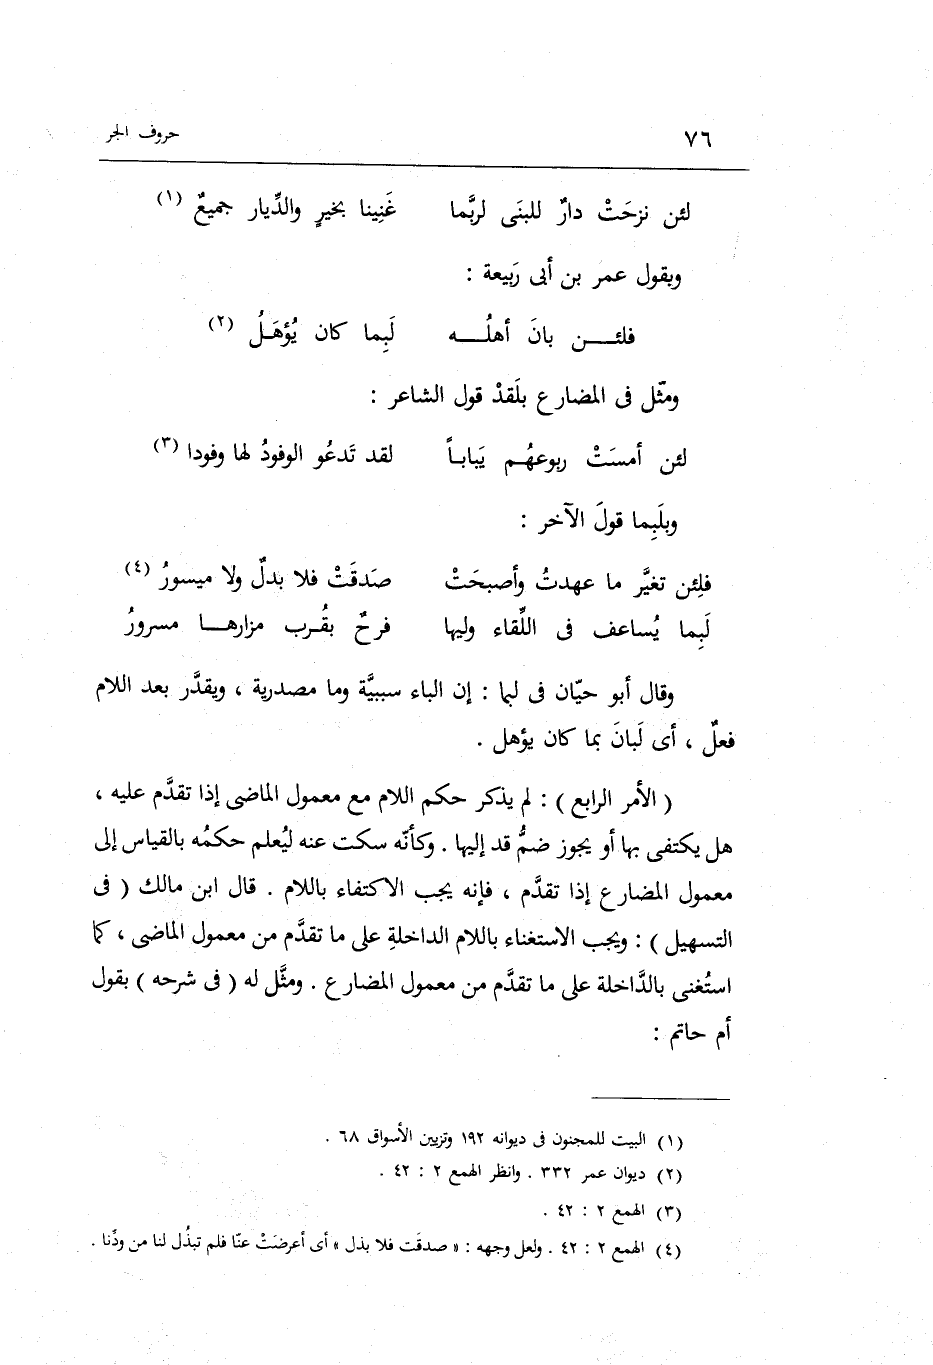 ٧٦ حروف الجر
لئن نزحَتْ دارٌ للبنَى لربَّما غَنِينا بخيرٍ والدِّيار جميعٌ (١)
ويقول عمر بن أبى رَبيعة :
فلئـــن بانَ أهلُـــه لَبِما كان يُؤهَـلُ (٢)
ومثّل فى المضارع بلَقدْ قول الشاعر :
لئن أمسَتْ ربوعهُـم يَبابـاً لقد تَدعُو الوفودُ لها وفودا (٣)
وبلَبِما قولَ الآخر :
فلِئن تغيَّر ما عهدتُ وأصبحَتْ صَدقَتْ فلا بدلٌ ولا ميسورُ (٤)
لَبِما يُساعف فى اللِّقاء وليها فرحٌ بقُـرب مزارهـا مسرورُ
وقال أبو حيّان فى لبما : إن الباء سببيَّة وما مصدرية ، ويقدَّر بعد اللام
فعلٌ ، أى لَبانَ بما كان يؤهل .
( الأمر الرابع ) : لم يذكر حكم اللام مع معمول الماضى إذا تقدَّم عليه ،
هل يكتفى بها أو يجوز ضمُّ قد إليها . وكأنّه سكت عنه ليُعلم حكمُه بالقياس إلى
معمول المضارع إذا تقدَّم ، فإنه يجب الاكتفاء باللام . قال ابن مالك ( فى
التسهيل ) : ويجب الاستغناء باللام الداخلةِ على ما تقدَّم من معمول الماضى ، كما
استُغنى بالدَّاخلة على ما تقدَّم من معمول المضارع . ومثَّل له ( فى شرحه ) بقول
أم حاتم :
(١) البيت للمجنون فى ديوانه ١٩٢ وتزيين الأسواق ٦٨ .
(٢) ديوان عمر ٣٣٢ . وانظر الهمع ٢ : ٤٢ .
(٣) الهمع ٢ : ٤٢ .
(٤) الهمع ٢ : ٤٢ . ولعل وجهه : « صدقَت فلا بذل » أى أعرضَتْ عنّا فلم تبذُل لنا من ودِّنا .